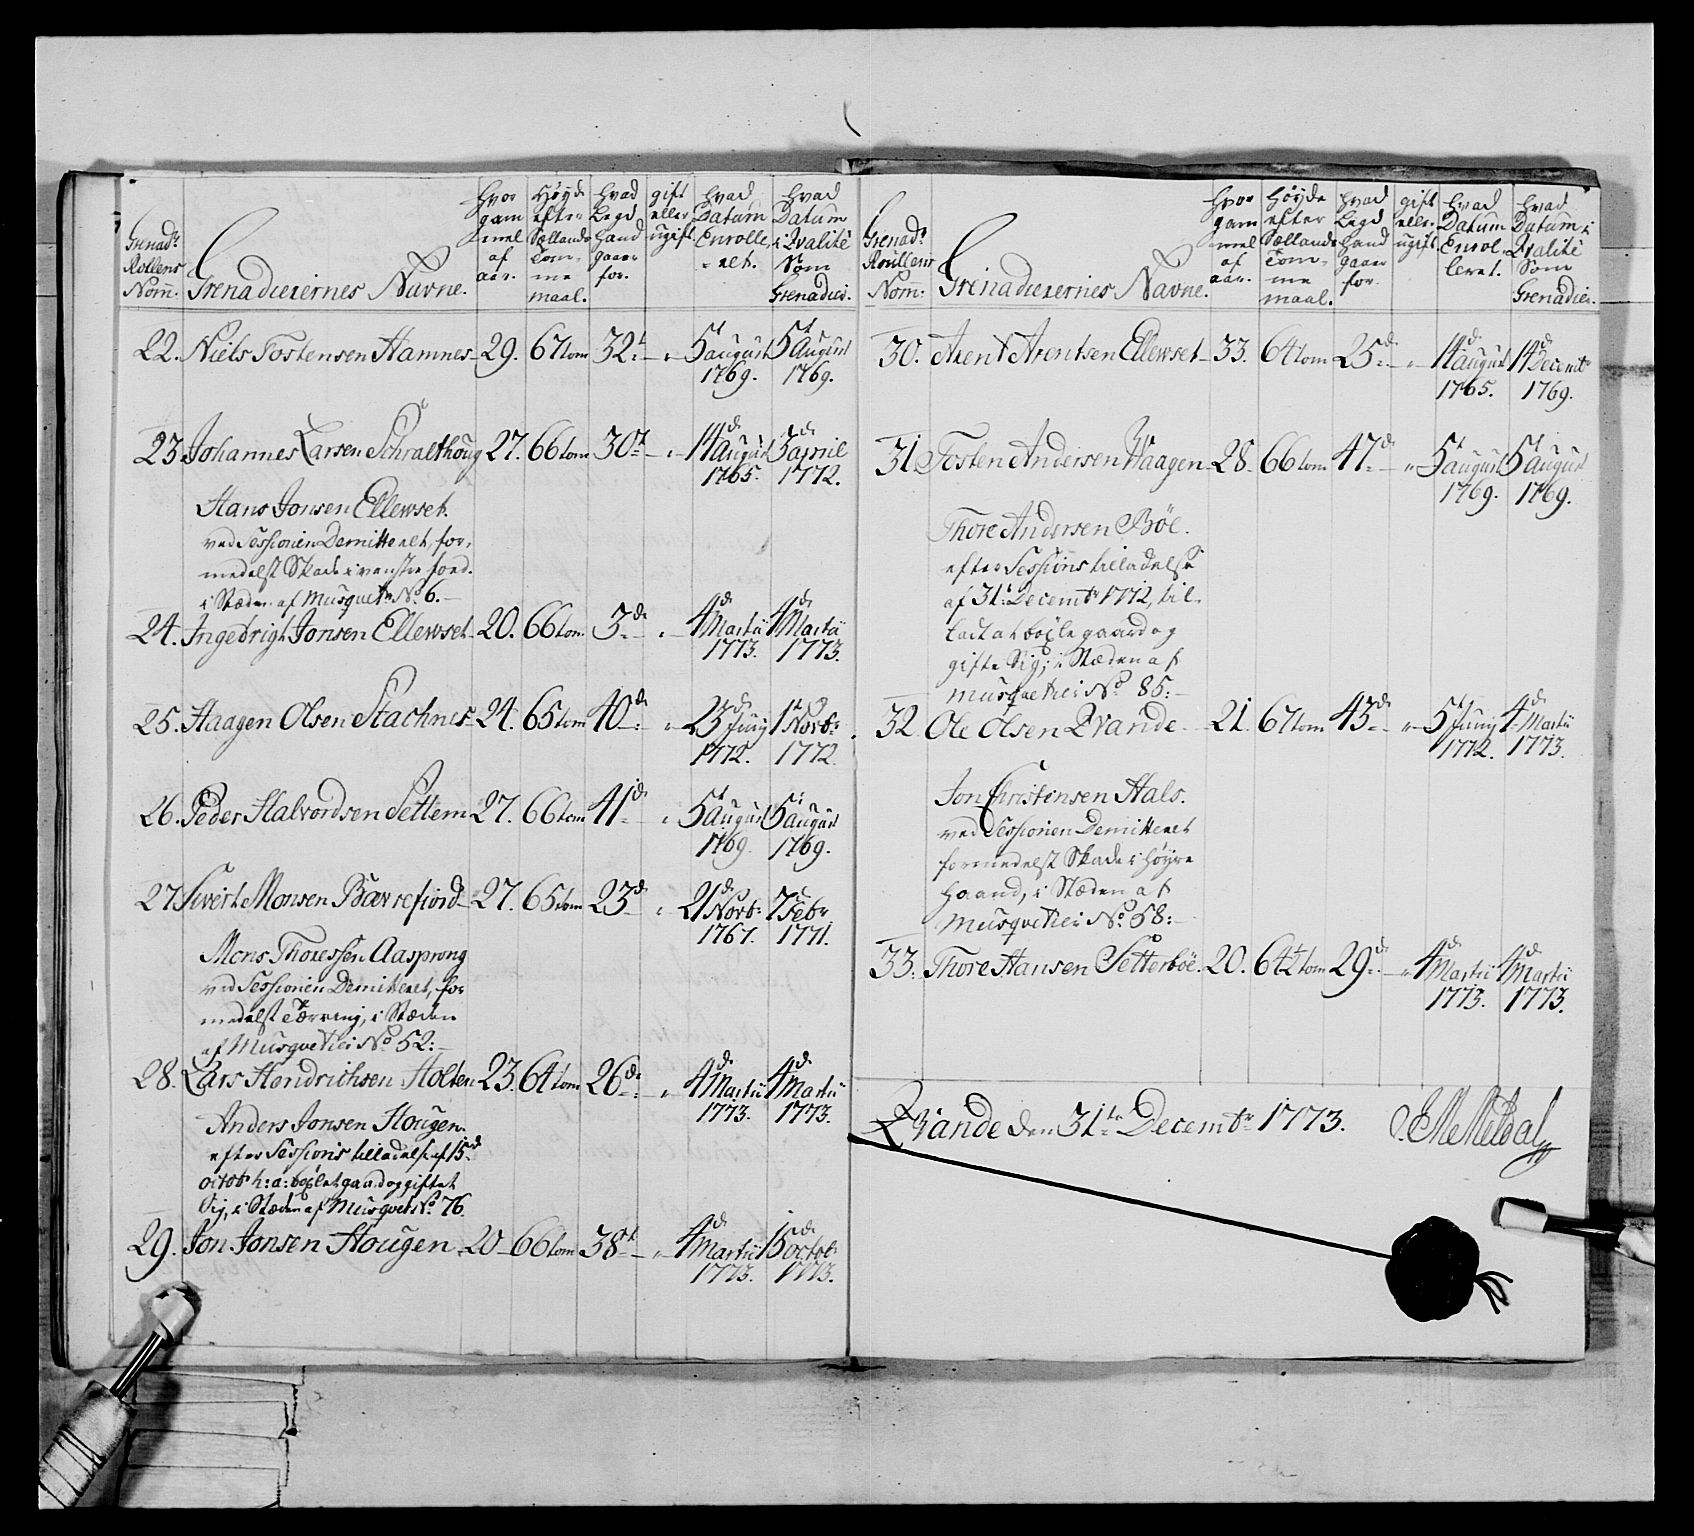 Grenad:r Rollens Nom:
Grenadierernes Navne.
hvor gammel af aar.
Høyde efter Sællands Tomme maal.
hvad Legd hand gaaer for.
gift eller ugift
hvad Datum Enrolleret.
hvad Datum i Qvalité Som Grenadier.
22. Niels Tostensen Hamnes 29. 67 tom 32t „ 5t august 1769. 5t August 1769.
23. Johannes Larsen Schralthoug 27. 66 tom 30t „ 14d August 1765. 3d april 1772.
Hans Jonsen Ellewset.
ved Sessionen Demitteret, for-
medelst Skade i venstre foed.
i Stæden af Musquetr No 6.
24. Ingebrigt Jonsen Ellewset 20. 66 tom. 3de „ 4d Martii 1773. 4d Martii 1773.
25. Haagen Olsen Stachnes 24. 65 tom 40d „ 23d Junij 1772. 1t Novbr 1772
26. Peder Halvordsen Settem 27. 66 tom 41d „ 5t august 1769. 5t august 1769.
27. Sivert Monsen Bævrefiord 27. 65 tom 23d „ 21d Novbr 1767. 7d Febr 1771.
Mons Thoressen Aasprong
ved Sessionen Demitteret, for
medelst Tærring, i Stæden
af Musquetier No 52:
28. Lars Hendrichsen Holten 23. 64 tom 26de „ 4d Martii 1773. 4d Martii 1773.
Anders Jonsen Hougen.
efter Sessions tilladelse af 15d
octobr h: a: bøxlet gaard og giftet
Sig, i Stæden af Musquetr No 76.
29. Jon Jonsen Hougen 20 66 tom 38t „ 4d Martii 1773. 15d octobr 1773.
Grenad:r Roullens Nom:
Grenadierernes Navne.
hvor gammel af aar.
Høyde efter Sællands Tomme maal.
hvad Legd hand gaaer for.
gift eller ugift
hvad Datum Enrolleret.
hvad Datum i Qvalité Som Grenadier.
30. Arent Arentsen Ellewset 33. 64 tom 25d „ 14d august 1765. 14d Decembr 1769.
31. Tosten Andersen Waagen 28. 66 tom 47d „ 5t august 1769. 5t august 1769.
Thore Andersen Böe.
efter Sessions tilladelse
af 31t Decembr 1772, til-
ladt at bøxle gaard og
gifte Sig, i Stæden af
Musquetier No 85:
32. Ole Olsen Qvande 21. 67 tom 43d „ 5t Junij 1772. 4d Martii 1773.
Jon Christensen Hals.
ved Sessionen Demitteret
formedelst Skade i høyre
haand, i Stæden af
Musquetier No 58:
33. Thore Hansen Setterböe. 20. 64½ tom 29de „ 4d Martii 1773. 4d Martii 1773.
Qvande den 31te Decembr 1773.